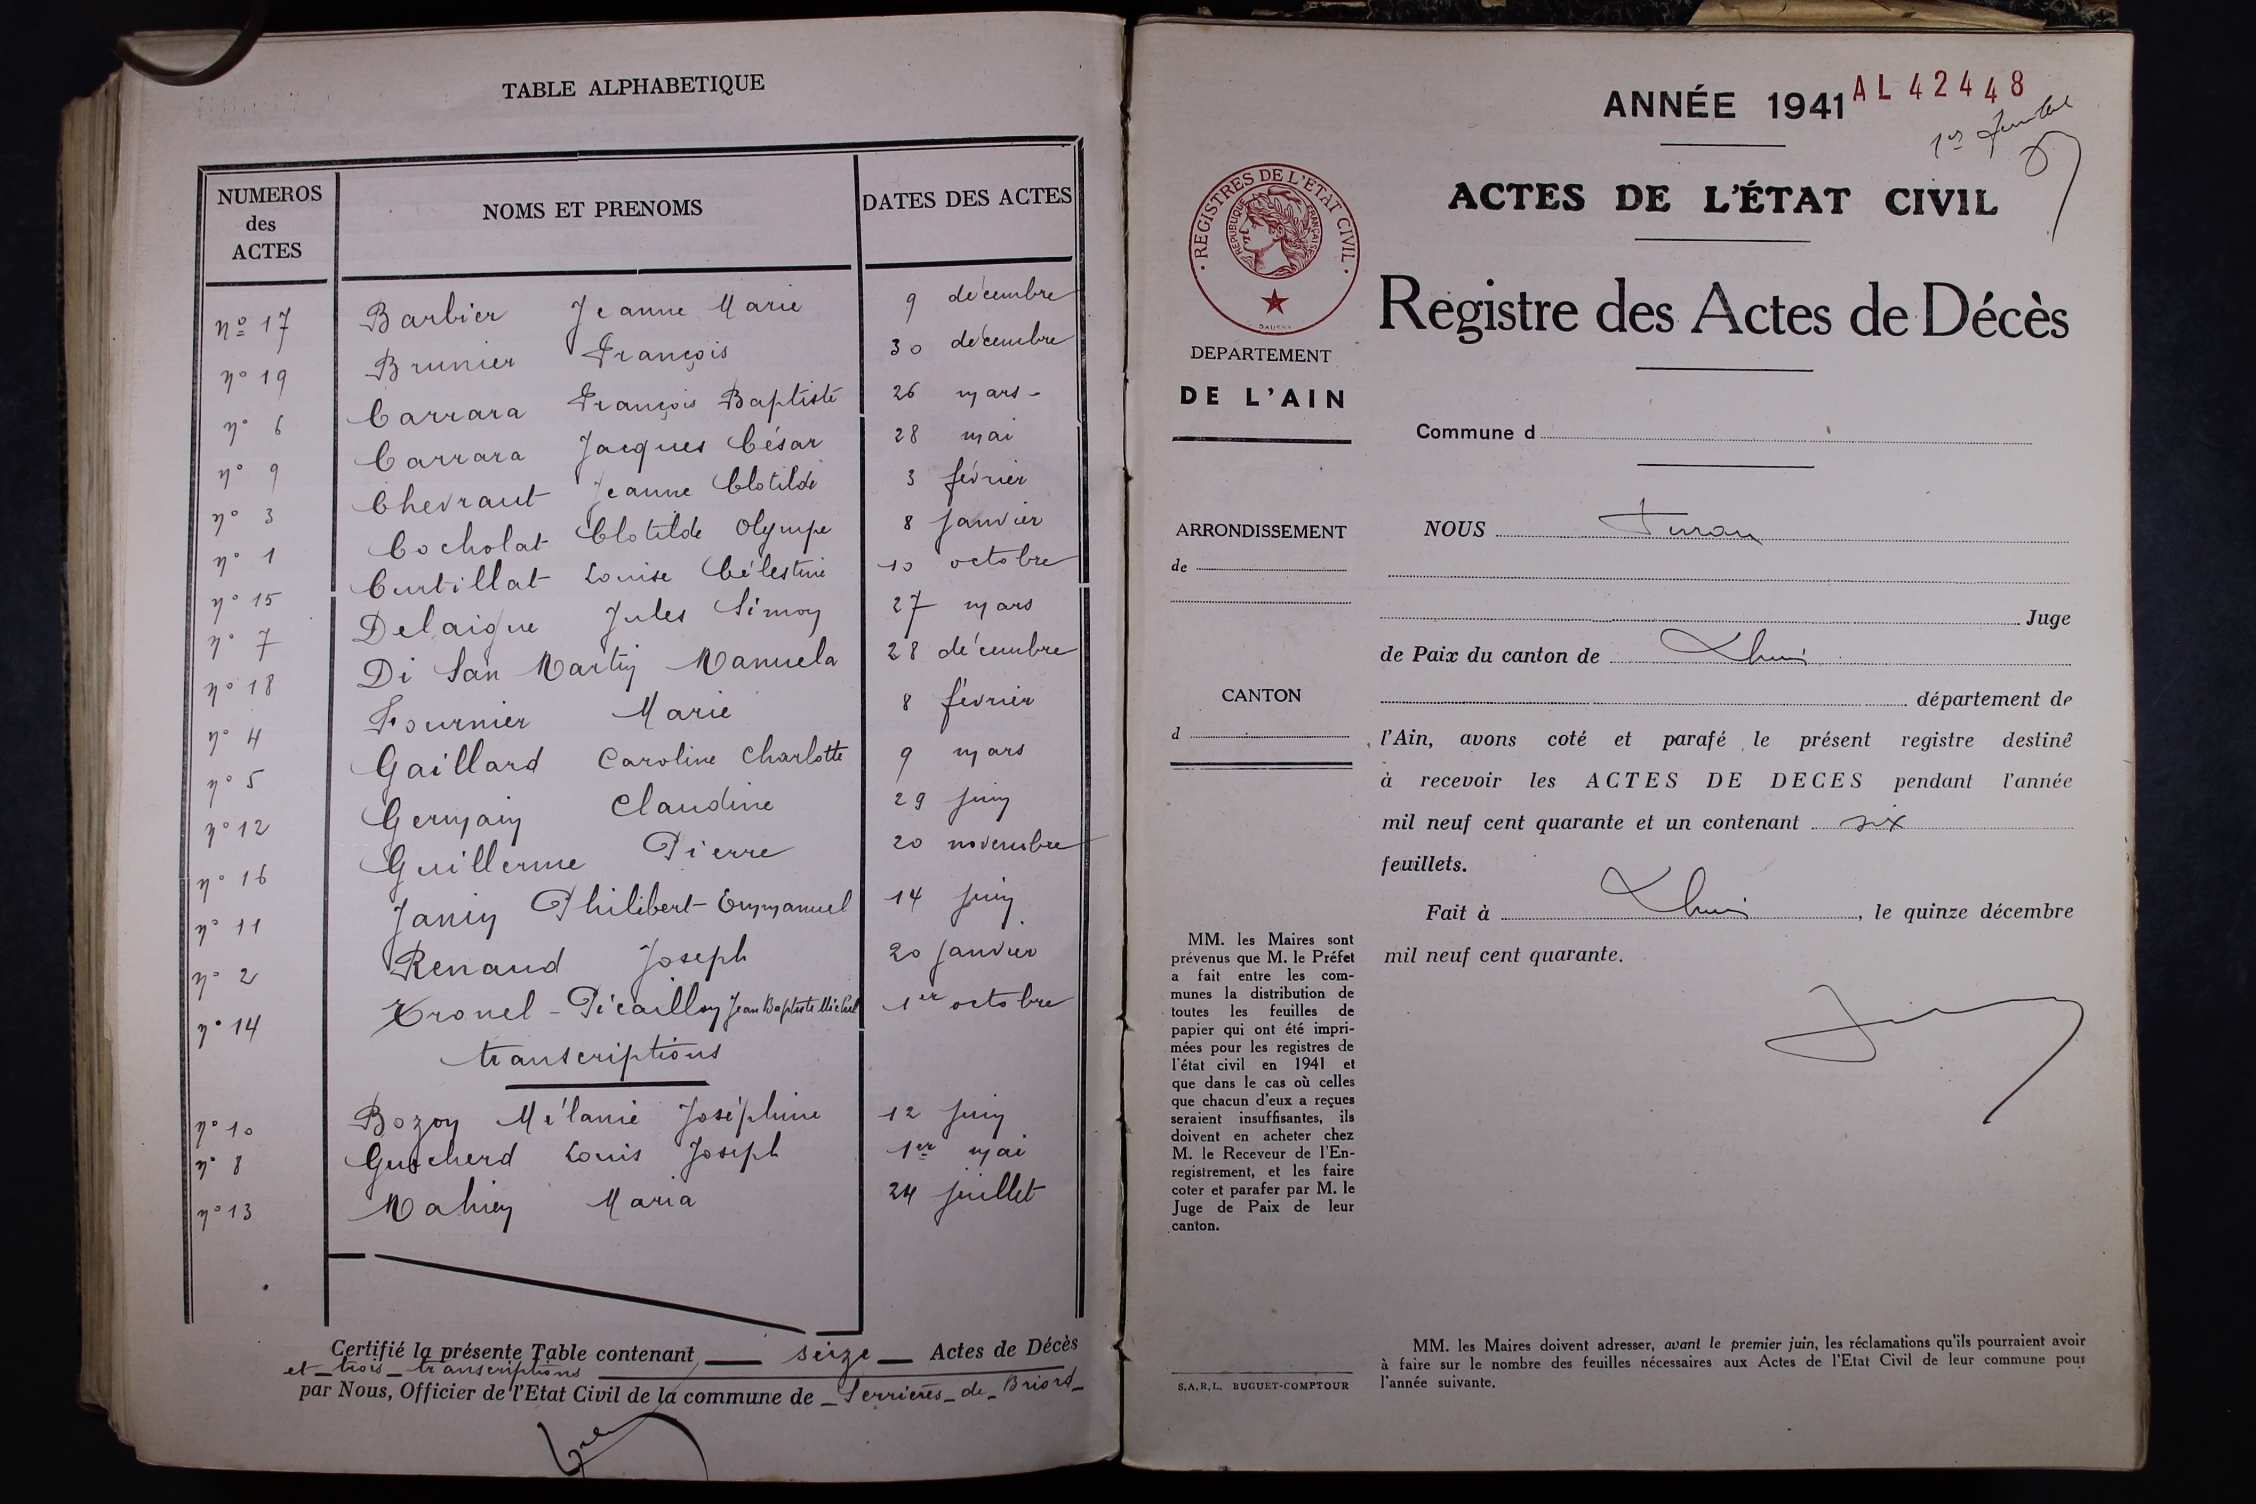 TABLE ALPHABETIQUE
NUMEROS des ACTES NOMS ET PRENOMS DATES DES ACTES
Nº 17 Barbier Jeanne Marie 9 décembre
Nº 19 Brunier François 30 décembre
Nº 6 Carrara François Baptiste 26 mars
Nº 9 Carrara Jacques César 28 mai
Nº 3 Chevraut Jeanne Clotilde 3 février
Nº 1 Cocholat Clotilde Olympe 8 janvier
Nº 15 Curtillat Louise Célestine 10 octobre
Nº 7 Delaigue Jules Simon 27 mars
Nº 18 Di San Martin Manuela 28 décembre
Nº 4 Fournier Marie 8 février
Nº 5 Gaillard Caroline Charlotte 9 mars
Nº 12 Germain Claudine 29 juin
Nº 16 Guillerme Pierre 20 novembre
Nº 11 Janin Philibert-Emmanuel 14 juin
Nº 2 Renaud Joseph 20 janvier
Nº 14 Tronel-Pécaillon Jean Baptiste Michel 1er octobre
transcriptions
Nº 10 Bozon Mélanie Joséphine 12 juin
Nº 8 Guicherd Louis Joseph 1er mai
Nº 13 Mahien Maria 24 juillet
Certifié la présente Table contenant seize Actes de Décès
et trois transcriptions
par Nous, Officier de l'Etat Civil de la commune de Serrières-de-Briord
ANNÉE 1941 AL 42448
1er feuillet
ACTES DE L'ÉTAT CIVIL
REGISTRES DE L'ETAT CIVIL
REPUBLIQUE FRANÇAISE
Registre des Actes de Décès
DEPARTEMENT
DE L'AIN
Commune d
ARRONDISSEMENT
de
CANTON
d
NOUS
Juge
de Paix du canton de Lhuis
département de
l'Ain, avons coté et parafé le présent registre destiné
à recevoir les ACTES DE DECES pendant l'année
mil neuf cent quarante et un contenant six
feuillets.
Fait à Lhuis, le quinze décembre
mil neuf cent quarante.
MM. les Maires sont
prévenus que M. le Préfet
a fait entre les com-
munes la distribution de
toutes les feuilles de
papier qui ont été impri-
mées pour les registres de
l'état civil en 1941 et
que dans le cas où celles
que chacun d'eux a reçues
seraient insuffisantes, ils
doivent en acheter chez
M. le Receveur de l'En-
registrement, et les faire
coter et parafer par M. le
Juge de Paix de leur
canton.
S.A.R.L. BUGUET-COMPTOUR
MM. les Maires doivent adresser, avant le premier juin, les réclamations qu'ils pourraient avoir
à faire sur le nombre des feuilles nécessaires aux Actes de l'Etat Civil de leur commune pour
l'année suivante.